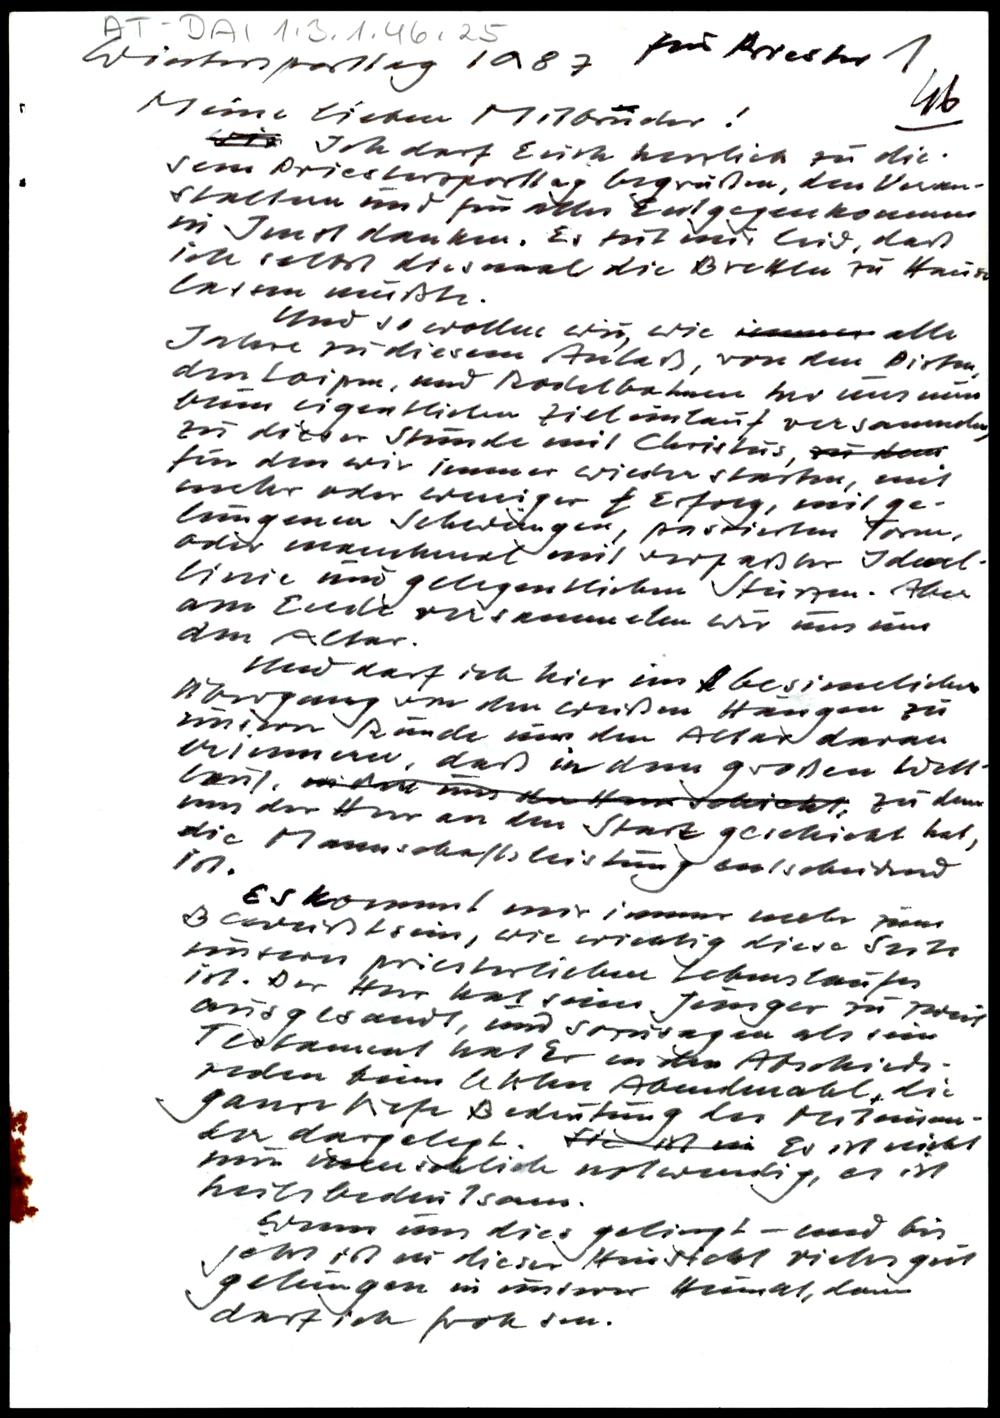 AT-DAI 1.3.1.46.25
Wintersporttag 1987 für Priester 1
46
Meine lieben Mitbrüder!
Ich darf Euch herzlich zu die-
sem Priestersporttag begrüßen, den Veran-
staltern und für alles Entgegenkommen
in Imst danken. Es tut mir leid, daß
ich selbst diesmal die Brettln zu Hause
lassen mußte.
Und so wollen wir, wie immer alle
Jahre zu diesem Anlaß, von den Pisten,
den Loipen, und Rodelbahnen her uns nun
beim eigentlichen Zieleinlauf versammeln,
zu dieser Stunde mit Christus, zu dem
für den wir immer wieder starten, mit
mehr oder weniger Erfolg, mit ge-
lungenen Schwüngen, passierten Toren,
oder manchmal mit verpaßter Ideal-
linie und gelegentlichen Stürzen. Aber
am Ende versammeln wir uns um
den Altar.
Und darf ich hier im besinnlichen
Übergang von den weißen Hängen zu
unserer Runde um den Altar daran
erinnern, daß in dem großen Welt-
lauf, in den uns der Herr schickt, zu dem
uns der Herr an den Start geschickt hat,
die Mannschaftsleistung entscheidend
ist.
Es kommt mir immer mehr zum
Bewußtsein, wie wichtig diese Seite
unseres priesterlichen Lebenslaufes
ist. Der Herr hat seine Jünger zu zweit
ausgesandt, und sozusagen als sein
Testament hat Er in den Abschieds-
reden beim letzten Abendmahl, die
ganze tiefe Bedeutung des Miteinan-
der dargelegt. Sie ist in Es ist nicht
nur menschlich notwendig, es ist
heilsbedeutsam.
Wenn uns dies gelingt – und bis
jetzt ist in dieser Hinsicht vieles gut
gelungen in unserer Heimat, dann
darf ich froh sein.